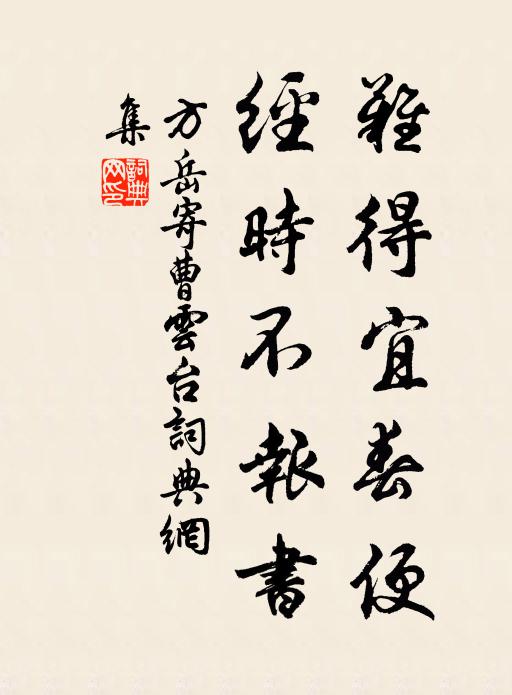 難得宜春便
經時不報書
方岳寄曹雲台詞典網
集
詞典
网印